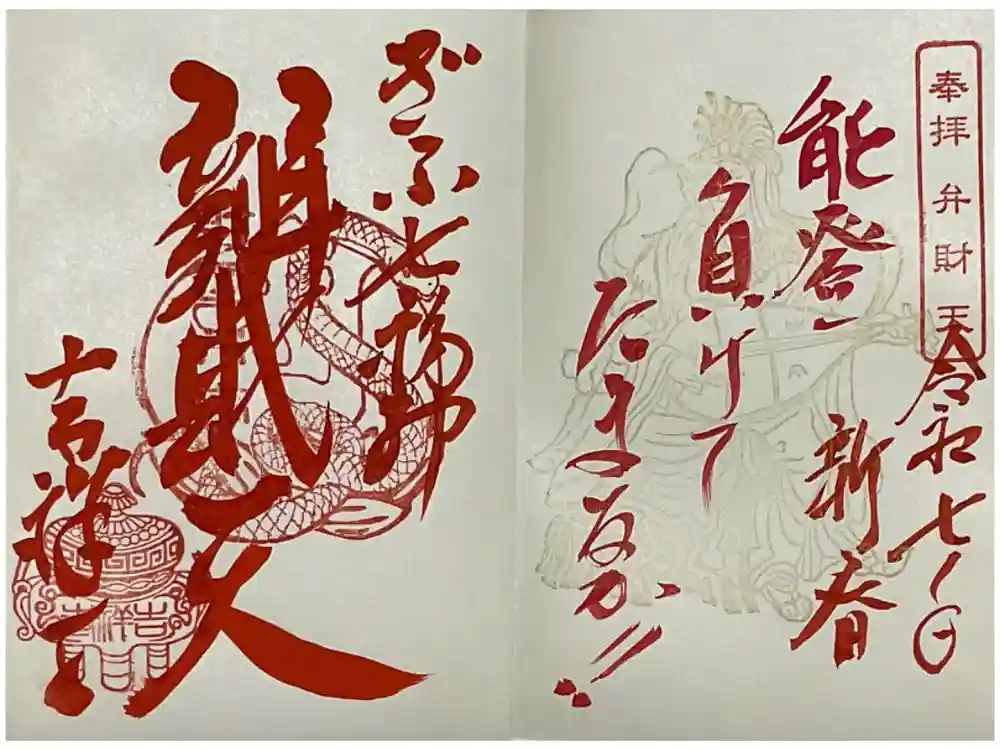 奉拝 弁財天
令和七
新春
能登
負けて
たまるか!!
ぎふ七福神
辯財天
吉祥寺